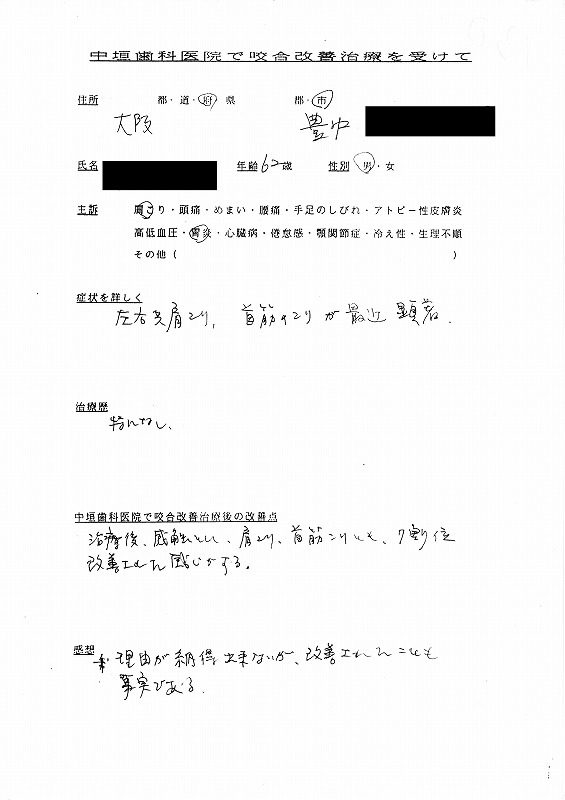 中垣歯科医院で咬合改善治療を受けて
住所 都・道・府・県 郡・市
大阪 豊中
氏名 年齢 62歳 性別 男・女
主訴 肩こり・頭痛・めまい・腰痛・手足のしびれ・アトピー性皮膚炎
高低血圧・胃炎・心臓病・倦怠感・顎関節症・冷え性・生理不順
その他（ ）
症状を詳しく
左右共肩こり、首筋のこりが最近顕著.
治療歴
特になし、
中垣歯科医院で咬合改善治療後の改善点
治療後、感触として、肩こり、首筋こりとも、7割位
改善された感じがする。
感想
理由が納得出来ないが、改善されたことも
事実である.